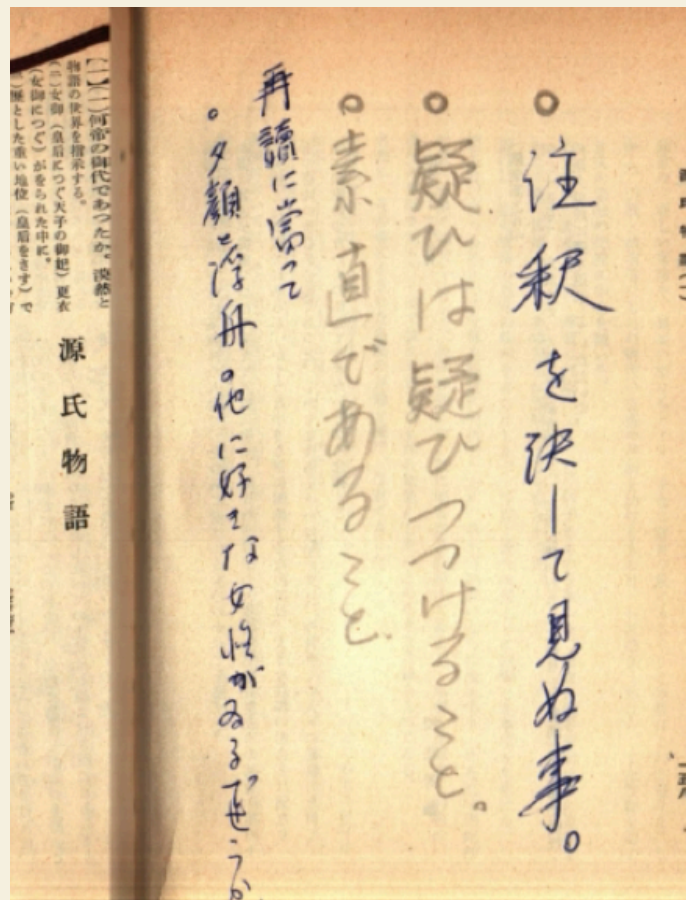 ○ 注釈を決して見ぬ事。
○ 疑ひは疑ひつつけること。
○ 素直であること
再讀に當つて
○ 夕顔と浮舟の他に好きな女性がゐるでせうか
【一】(一)何帝の御代であつたか。漠然と
物語の世界を指示する。
(二)女御(皇后につぐ天子の御妃)更衣
(女御につぐ)がをられた中に。
とした重い地位(皇后をさす)で
源氏物語